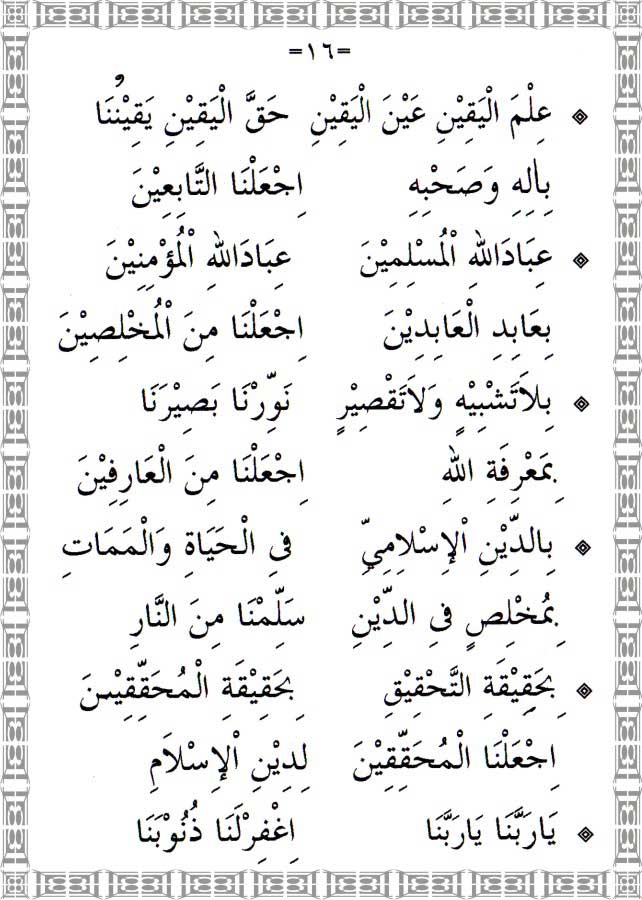 =١٦=
عِلْمَ الْيَقِيْنِ عَيْنَ الْيَقِيْنِ حَقَّ الْيَقِيْنِ يَقِيْنُنَا
بِاٰلِهِ وَصَحْبِهِ اِجْعَلْنَا التَّابِعِيْنَ
عِبَادَاللهِ الْمُسْلِمِيْنَ عِبَادَاللهِ الْمُؤْمِنِيْنَ
بِعَابِدِ الْعَابِدِيْنَ اِجْعَلْنَا مِنَ الْمُخْلِصِيْنَ
بِلاَتَشْبِيْهٍ وَلاَتَقْصِيْرٍ نَوِّرْنَا بَصِيْرَنَا
بِمَعْرِفَةِ اللهِ اِجْعَلْنَا مِنَ الْعَارِفِيْنَ
بِالدِّيْنِ الْإِسْلَامِيِّ فِى الْحَيَاةِ وَالْمَمَاتِ
بِمُخْلِصٍ فِى الدِّيْنِ سَلِّمْنَا مِنَ النَّارِ
بِحَقِيْقَةِ التَّحْقِيْقِ بِحَقِيْقَةِ الْمُحَقِّقِيْنَ
اِجْعَلْنَا الْمُحَقِّقِيْنَ لِدِيْنِ الْإِسْلَامِ
يَارَبَّنَا يَارَبَّنَا اِغْفِرْلَنَا ذُنُوْبَنَا